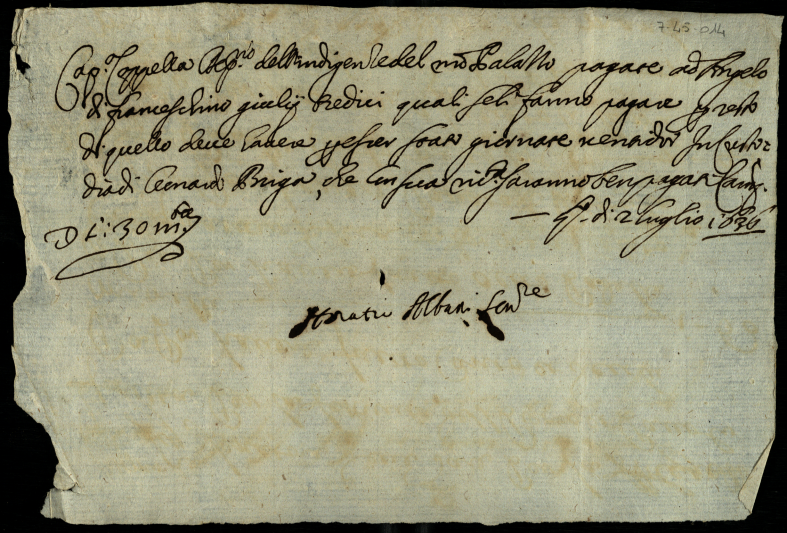 7-45-014
Cap.º Coppella Dep.rio dell'Indigenze del nro Palatto pagate ad Angelo
di franceschino giulij tredici quali seli fanno pagare p resto
di quello deve havere p esser stato giornate venidoi In Custo=
dia di Leonardo Briga, che con sua ric.ta saranno ben pagati
— q.to di 2 luglio 1636
D G: 30 m.bre
Horatio Albani Sen.re